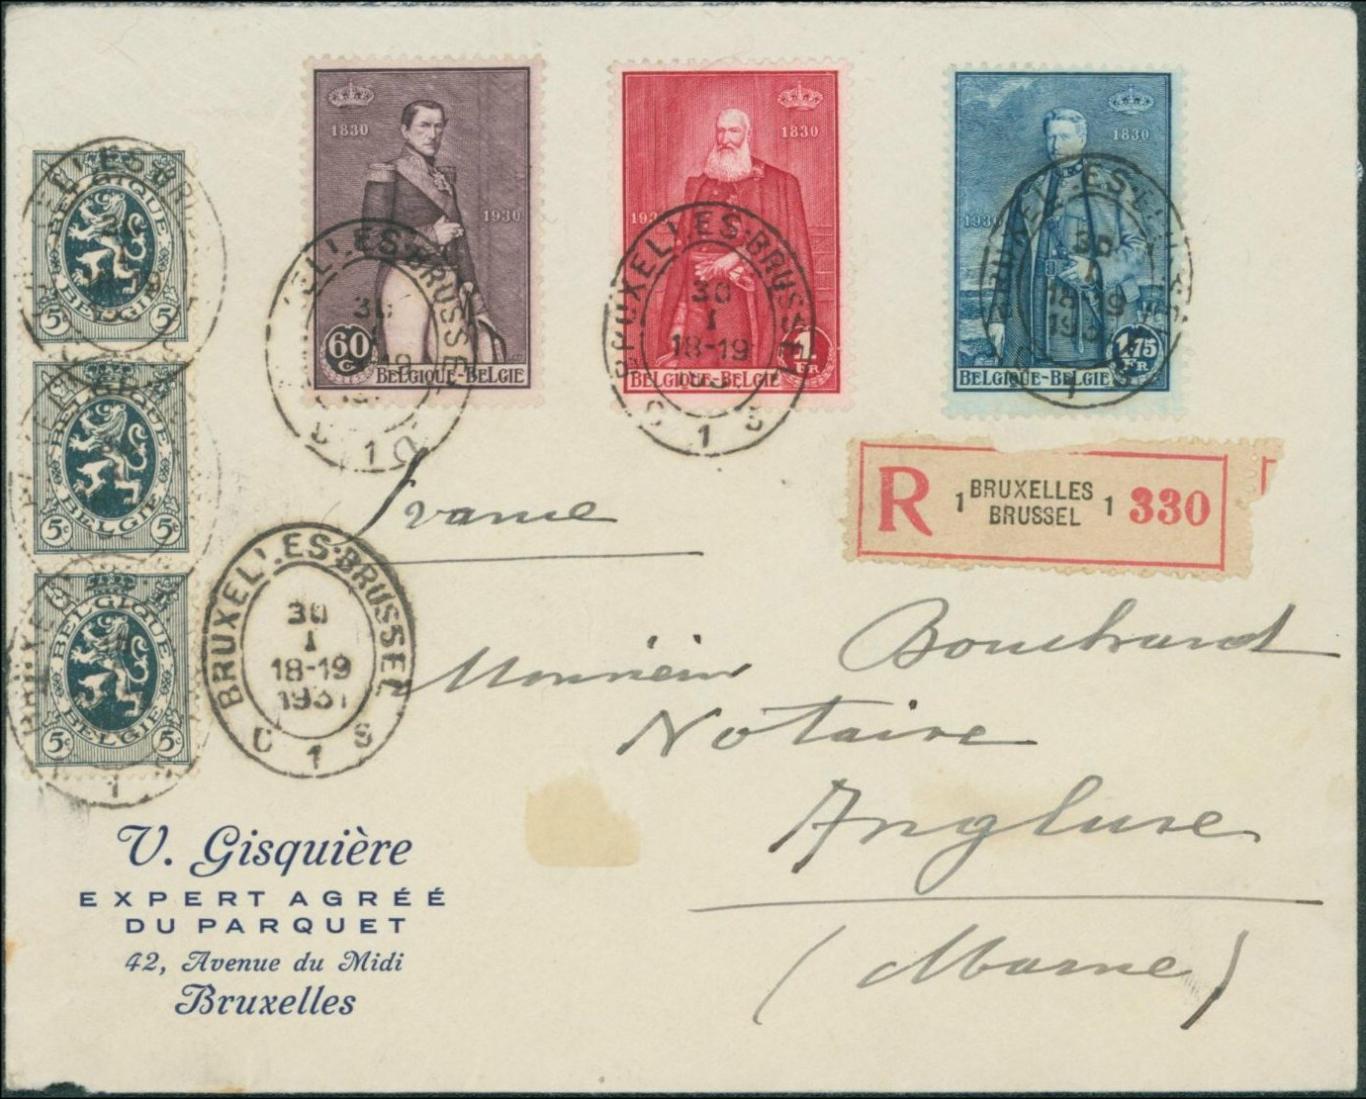 1830
1930
60
C
BELGIQUE-BELGIE
1830
193
1
FR
BELGIQUE-BELGIE
1830
1930
1.75
FR
BELGIQUE-BELGIE
BELGIQUE
BELGIE
5c 5c
BELGIQUE
BELGIE
5c 5c
BELGIQUE
BELGIE
5c 5c
BRUXELLES-BRUSSEL
30
I
18-19
193
1
BRUXELLES-BRUSSEL
30
I
18-19
1931
1
R 1 BRUXELLES 1 330
BRUSSEL
France
BRUXELLES-BRUSSEL
30
I
18-19
1931
C 1 S
Monsieur Bouchard
Notaire
Anglure
(Marne)
V. Gisquière
EXPERT AGRÉÉ
DU PARQUET
42, Avenue du Midi
Bruxelles